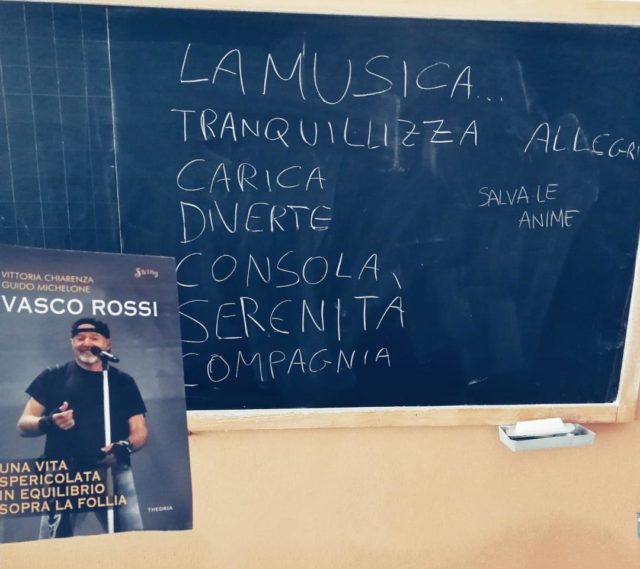 LA MUSICA...
TRANQUILLIZZA
CARICA
DIVERTE
CONSOLA
SERENITÀ
COMPAGNIA
ALLEGRI
SALVA LE
ANIME
String
VITTORIA CHIARENZA
GUIDO MICHELONE
VASCO ROSSI
UNA VITA
SPERICOLATA
IN EQUILIBRIO
SOPRA LA FOLLIA
THEORIA